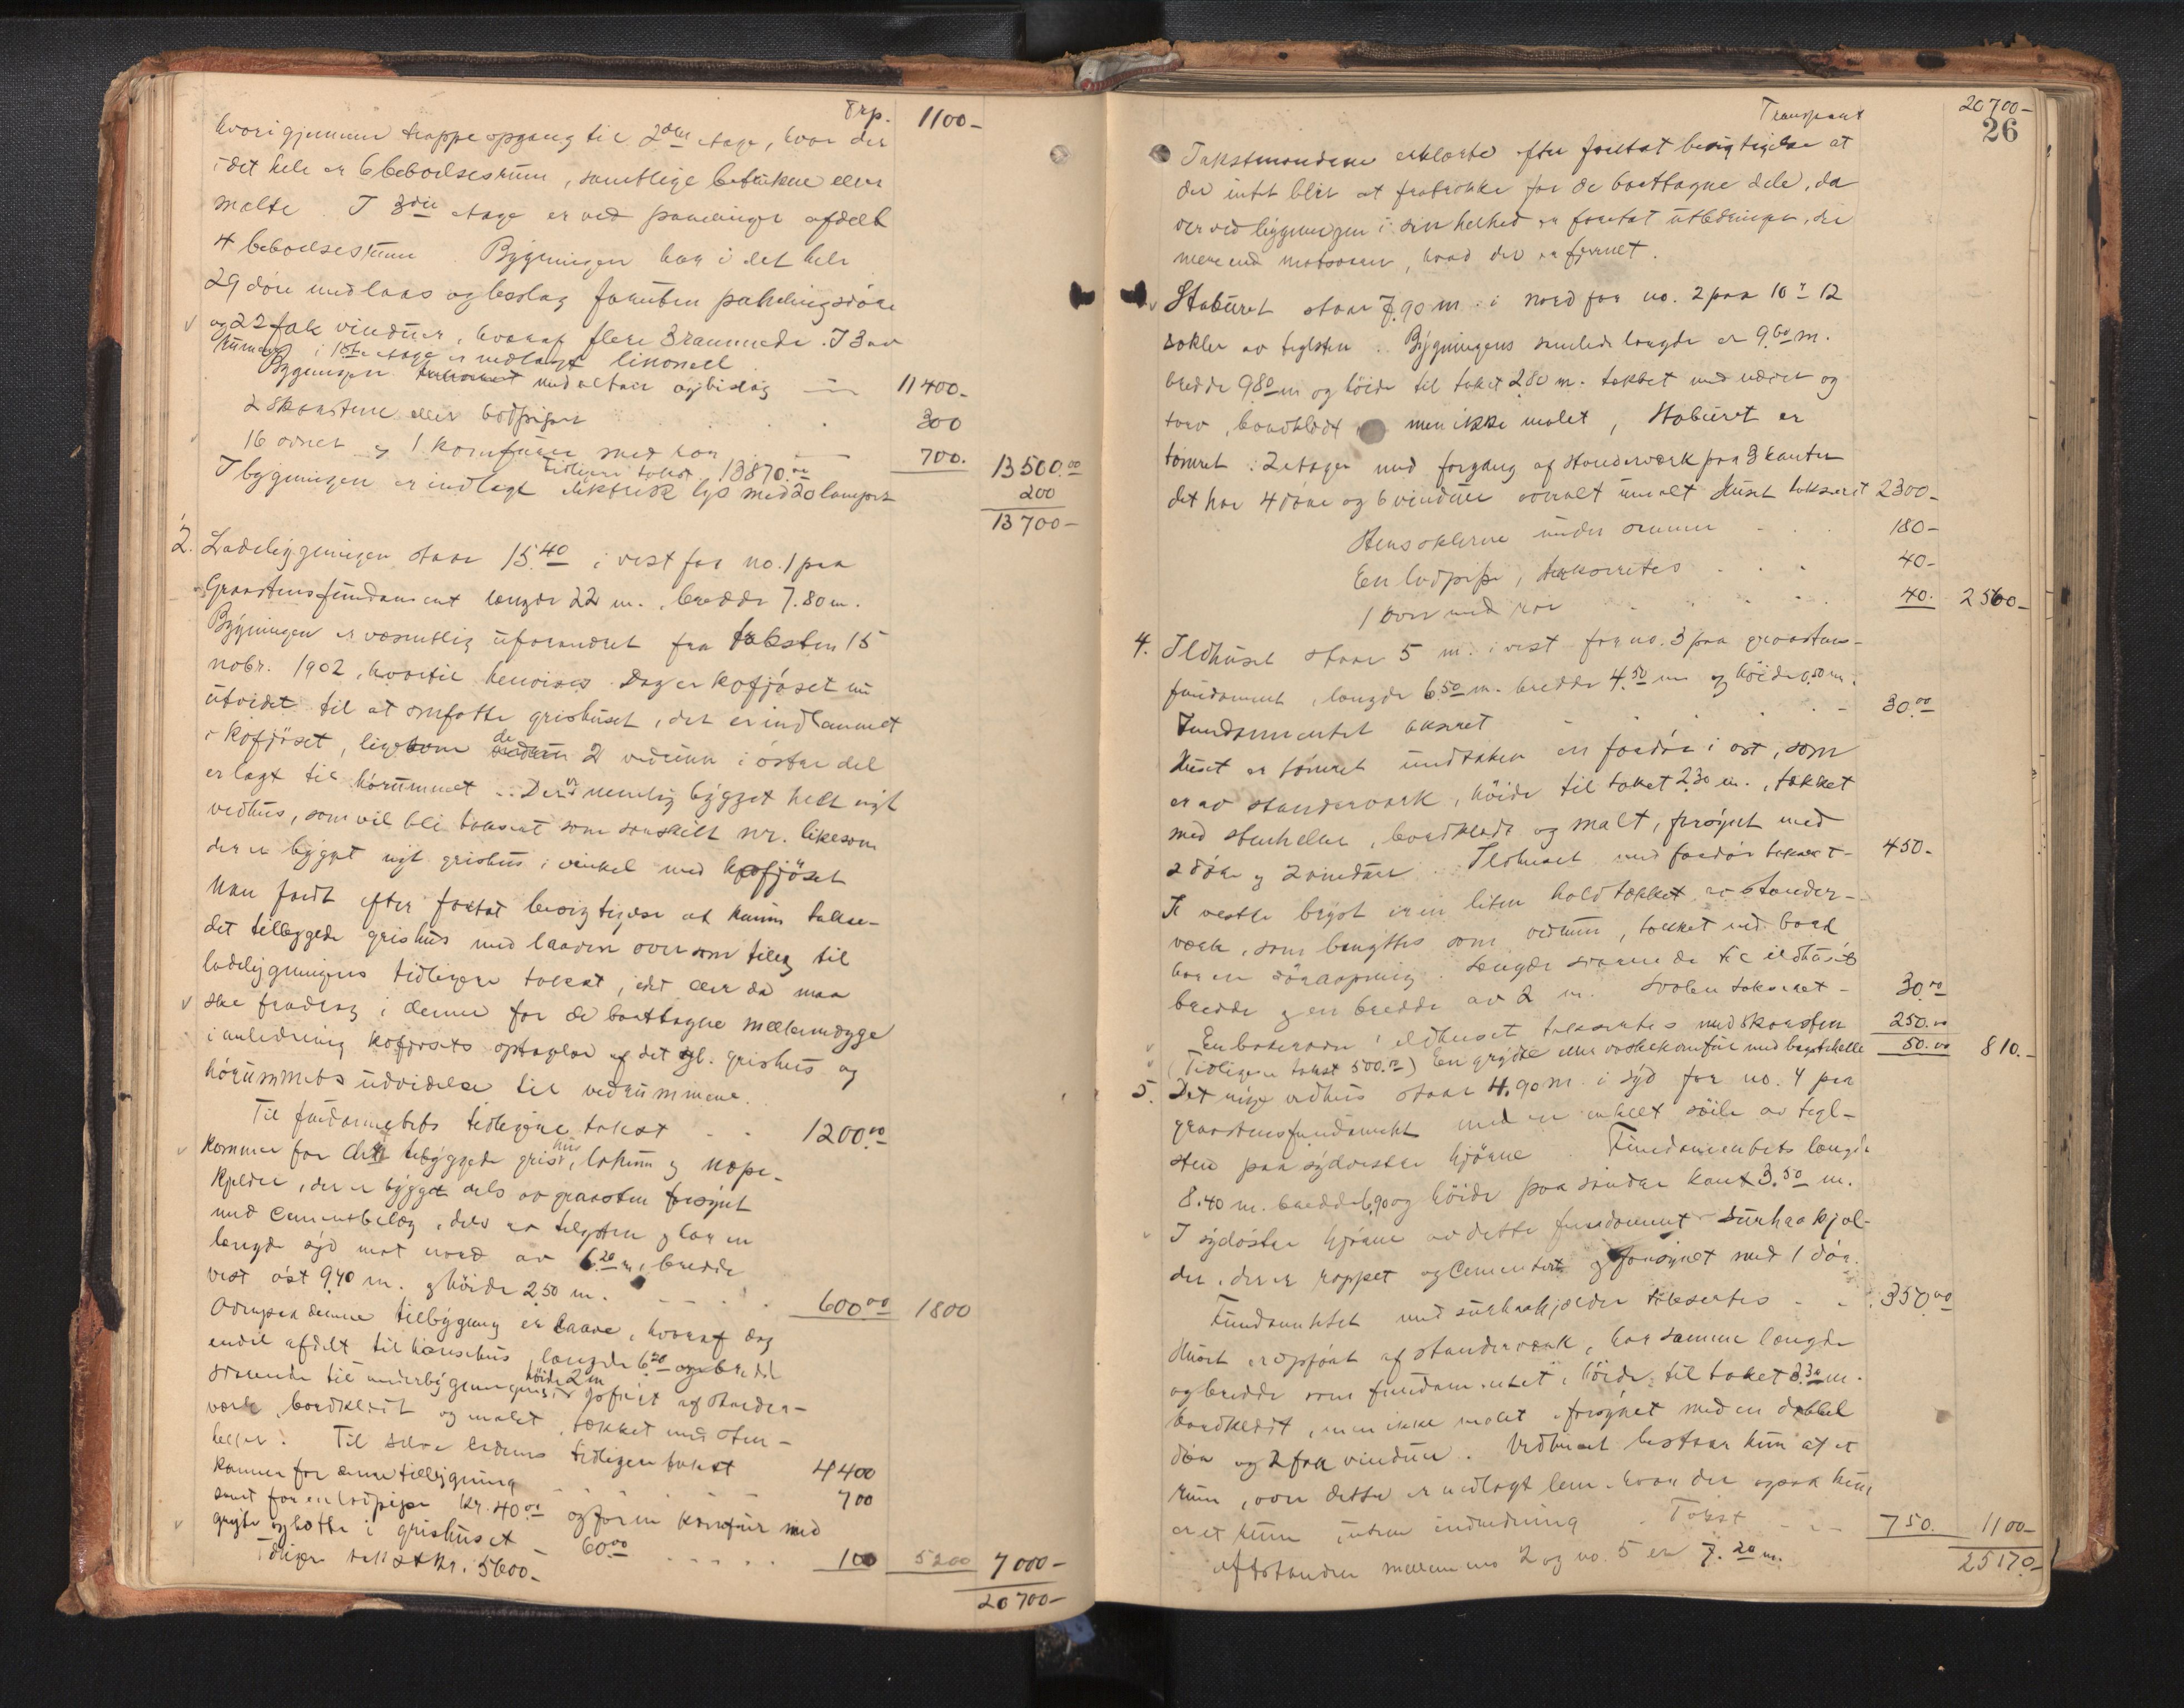 Trp. 1100-
hvori gjennem trappeopgang til 2den etage, hvor der
i det hele er 6 beboelsesrum, samtlige betrukne eller
malte. I 3die etage er ved panelinger afdelt
4 beboelsesrum. Bygningen har i det hele
29 döre med laas og beslag foruten pakningsdöre
og 22 fak vinduer, hvoraf flere 3 rammede. I 3 av
rummene i 1ste etage er nedlagt linoneel
Bygningen med altan og bislag 11400.-
2 skorstene eller bodpiper 300
16 ovner og 1 komfur med rör 700. 13500.00
tidligere takst 13870.00
I bygningen er indlagt elektrisk lys med 20 lamper 200
13700-
2. Ladebygningen staar 15.40 i vest for no. 1 paa
Graastensfundament længde 22 m., bredde 7.80 m.
Bygningen er væsentlig uforandret fra taksten 15
nobr. 1902, hvortil henvises. Dog er kofjöset nu
utvidet til at omfatte grishuset, det er indlemmet
i kofjöset, ligesom de 2 vedrum i östre del
er lagt til hörummet. Der er nemlig bygget helt nyt
vedhus, som vil bli taksert som særskilt nr. likesom
der er bygget nyt grishus i vinkel med kofjöset
Man fandt efter foretat besigtigelse at kunne takse-
det tilbyggede grishus med laaven over som tillæg til
ladebygningens tidligere takst, idet der da maa
ske fradrag i denne for de borttagne mellemvægge
i anledning kofjösets optagelse af det gl. grishus og
hörummets udvidelse til vedrummene.
Til fundamentets tidligere takst 1200.00
kommer for det tilbyggede grishus, lokum og næpe-
kjelder, der er bygget dels av graasten forsynt
med cementbelæg, dels av teglsten og har en
længde syd mot nord av 6.20 m, bredde
vest öst 9.40 m. og höide 2.50 m. 600.00 1800
Ovenpaa denne tilbygning er laave, hvoraf dog
endel afdelt til hönsehus, længde 6.20 og bredde
svarende til underbygningens, höide 2 m opfört af stander-
værk, bordklædt og malet, tækket med sten-
heller. Til selve ladens tidligere takst 4400
kommer for denne tilbygning 700
samt for en lodpipe kr. 40.00 og for en komfur med
gryte og hætte i grishuset 60.00 100 5200 7000-
Tidligere takst kr. 5600.- 20700-
Transport 20700-
26
Takstmændene erklærte efter foretat besigtigelse at
der intet blir at fratrække for de borttagne dele, da
der ved bygningen i sin helhed er foretat utbedringer, der
mere end motsvarer, hvad der er fjernet.
Staburet staar 7.90 m. i nord for no. 2 paa 10 à 12
sokler av teglsten. Bygningens samlede længde er 9.60 m.
bredde 9.80 m og höide til taket 2.80 m. tækket med næver og
torv, bordklædt men ikke malet, Staburet er
tömret. 2 etager med forgang af standerværk paa 3 kanter
det har 4 döre og 6 vinduer overalt umalt Huset taksert 2300-
Stensoklerne under samme 180-
En lodpipe, takseretes 40-
1 ovn med rör 40. 2560-
4. Ildhuset staar 5 m. i vest for no. 3 paa graastens-
fundament, længde 6.50 m. bredde 4.50 m og höide 0.50 m.
Fundamentet taksert 30.00
Huset er tömret undtaken en fordör i öst, som
er av standerværk, höide til taket 2.30 m., tækket
med stenheller, bordklædt og malt, forsynt med
2 döre og 2 vinduer. Ildhuset med fordör taksert- 450.-
Ti vestre bryst er en liten hald tækket av stander-
værk, som benyttes som vedrum, tækket med bord
har en döraapning. Længde svarende til ildhusets
bredde og en bredde av 2 m. Svolen taksert- 30.00
En bakerovn i ildhuset takseretes med skorsten 250.00
(Tidligere takst 500.00) En grytte eller vaskekomfur med bagstehelle 50.00 810.-
5. Det nye vedhus staar 4.90 m. i syd for no. 4 paa
graastensfundament med en enkelt söile av tegl-
sten paa sydvestre hjörne. Fundamentets længde
8.40 m. bredde 6.90 og höide paa söndre kant 3.50 m.
I sydöstre hjörne av dette fundament surhaakjel-
der, der er rappet og cementert og forsynet med 1 dör.
Fundamentet med surhaakjelder takseretes 350.00
Huset er opfört af standerværk, har samme længde
og bredde som fundamentet, höide til taket 3.30 m.
bordklædt, men ikke malet, forsynet med en dobbel
dör og 2 fak vinduer. Vedhuset bestaar kun af et
rum, over dette er nedlagt lem, hvor der ogsaa kun
er et rum, uten indredning. Takst 750. 1100-
Afstanden mellem no 2 og no. 5 er 7.20 m. 25170.-